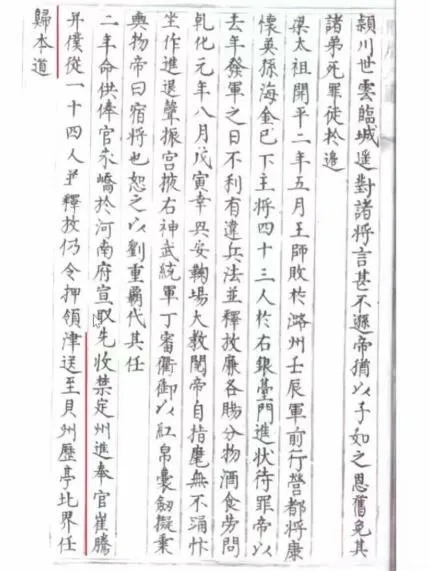 頴川世雲臨城遥對諸將言甚不遜帝猶以子如之恩舊免其
諸弟死罪徒於邉
梁太祖開平二年五月王師敗於潞州壬辰軍前行營都將康
懷英孫海金巳下主將四十三人於右銀臺門進狀待罪帝以
去年發軍之日不利有違兵法並釋放廉各賜分物酒食勞問
乾化元年八月戊寅幸興安鞠場大教閱帝自指麾無不涌忭
坐作進退聲振宮掖右神武統軍丁審衢御以紅帛囊劒擬乗
輿物帝曰宿將也恕之以劉重霸代其任
二年命供俸官嶠於河南府宣取先收禁定州進奉官崔騰
并僕從一十四人並釋放仍令押領津送至貝州歷亭北界任
歸本道